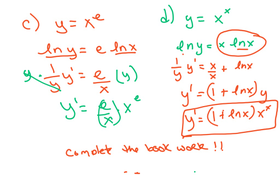 c) y = x^e
ln y = e ln x
y · 1/y y' = e/x (y)
y' = (e/x) x^e
d) y = x^x
ln y = x ln x
1/y y' = x/x + ln x
y' = (1 + ln x) y
y' = (1 + ln x) x^x
Complet the book work !!